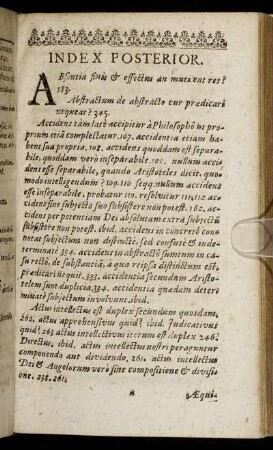 INDEX POSTERIOR.
ABsentia finis & effectus an mutent res?
183.
Abstractum de abstracto cur predicari
nequeat? 345.
Accidens tàm latè accipitur à Philosopho ut pro-
prium etiã complectatur. 107. accidentia etiam ha-
bens sua propria, 108. accidens quoddam est separa-
bile, quoddam verò inseparabile. 109. nullum acci-
dens esse separabile, quando Aristoteles dicit, quo-
modo intelligendum? 109. 110 seqq. nullum accidens
esse inseparabile, probatur 110. resolvitur 111. 112. ac-
cidens sine subjecto suo subsistere non potest. 162. ac-
cidens per potentiam Dei absolutam extra subjectũ
subsistere non potest. ibid. accidens in concreto con-
notat subjectum non distinctè, sed confusè & inde-
terminatè. 334. accidens in abstractò sumtum in ca-
su rectò, de substantiâ, à qua reipsa distinctum est,
prædicari nequit. 333. accidentia secundum Aristo-
telem sunt duplicia. 334. accidentia quædam deter-
minatè subjectum involvunt. ibid.
Actus intellectus est duplex secundum quosdam,
262. actus apprehensivus quid? ibid. Judicativus
quid? 263 actus intellectivus iterum est duplex 246.
Directus, ibid. actus intellectus nostri peragunneur
componendo aut dividendo, 261. actus intellectus
Dei & Angelorum verò sine compositione & divisi-
one. 238. 261.
Æqui-